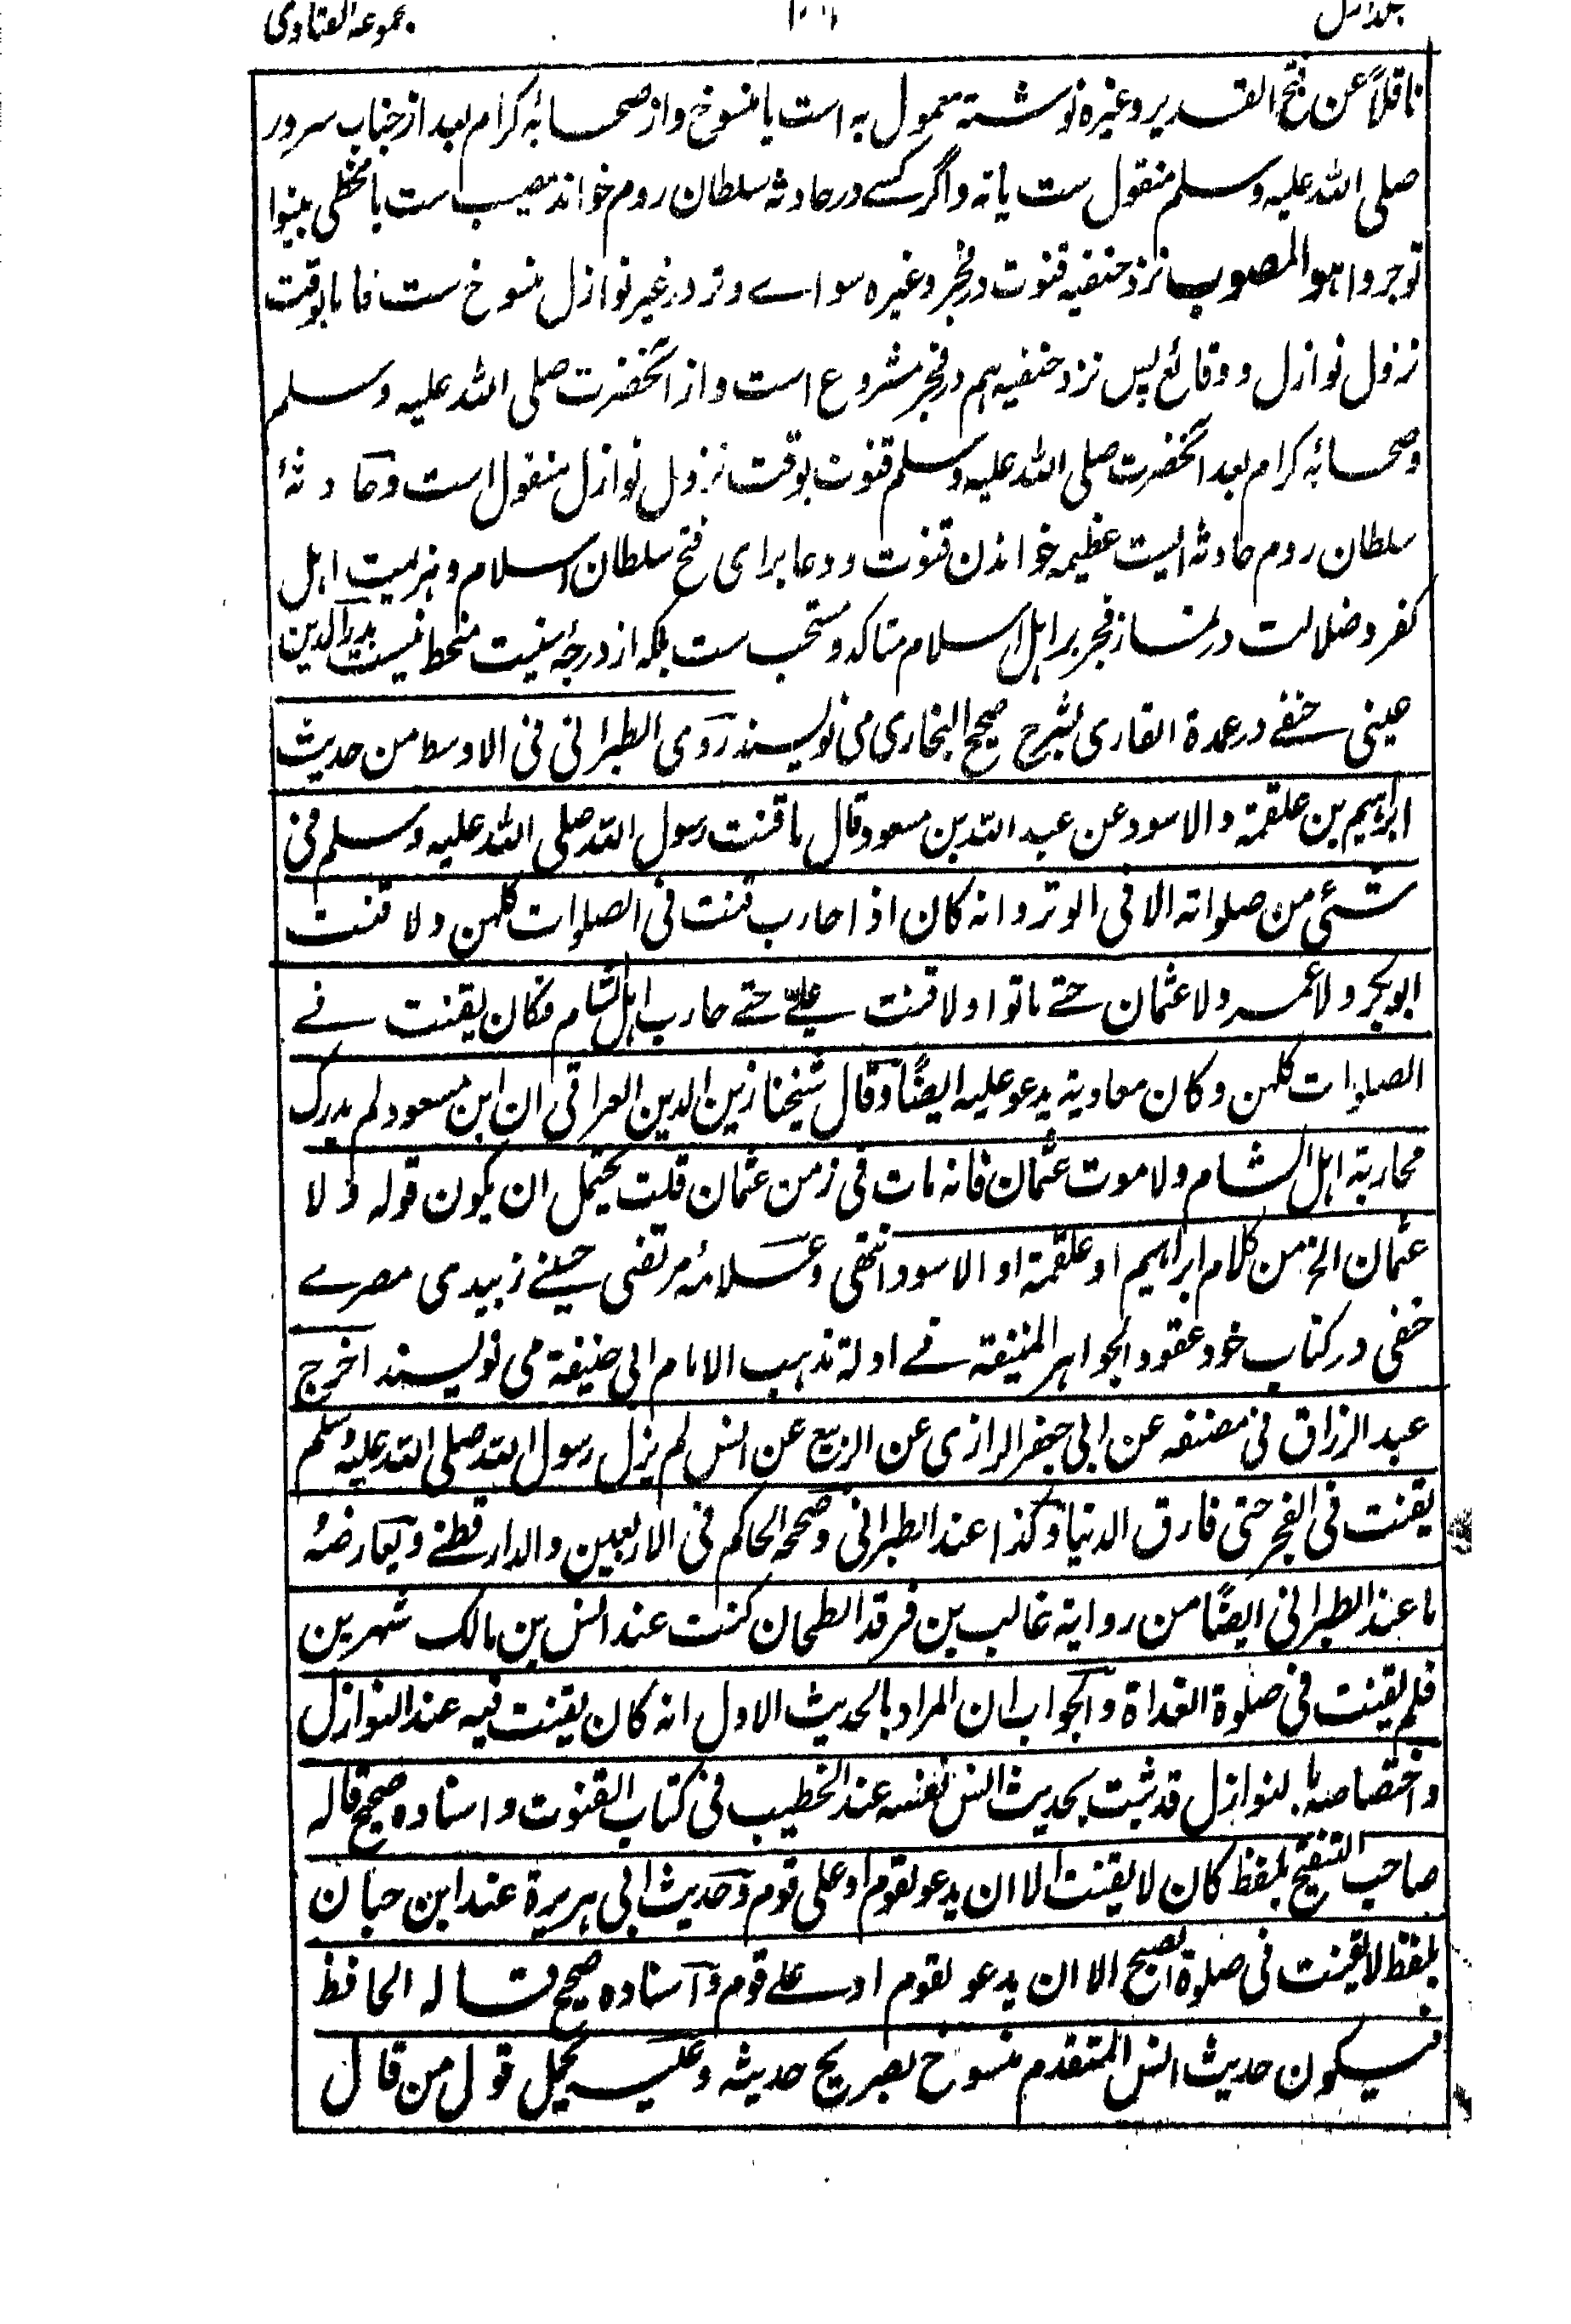 جلد اول مجموعه الفتاوى
ناقلاً عن فتح القدير وغيره نوشته معمول به است يا منسوخ و از صحابۂ كرام بعد از جناب سرور
صلى الله عليه وسلم منقول ست يا نه و اگر كسے در حادثه سلطان روم خواند مصيب ست يا مخطى بينوا
توجروا هو المصوب نزد حنفيه قنوت در فجر وغيره سواے وتر در غير نوازل منسوخ ست فاما بوقت
نزول نوازل و وقائع پس نزد حنفيه هم در فجر مشروع است و از آنحضرت صلى الله عليه وسلم
و صحابۂ كرام بعد آنحضرت صلى الله عليه وسلم قنوت بوقت نزول نوازل منقول است و حادثۂ
سلطان روم حادثه ايست عظيمه خواندن قنوت و دعا براى فتح سلطان اسلام و هزيمت اهل
كفر و ضلالت در نماز فجر بر اهل اسلام متاكد و مستحب ست بلكه از درجۂ سنيت منحط نيست بدر الدين
عينى حنفے در عمدة القارى بشرح صحيح البخارى مى نويسند روى الطبرانى فى الاوسط من حديث
ابراهيم بن علقمة والاسود عن عبد الله بن مسعود قال ما قنت رسول الله صلى الله عليه وسلم فى
شئى من صلواته الا فى الوتر وانه كان اذا حارب قنت فى الصلوات كلهن ولا قنت
ابوبكر ولا عمر ولا عثمان حتے ماتوا ولا قنت علےؓ حتے حارب اهل الشام فكان يقنت فے
الصلوات كلهن وكان معاوية يدعو عليه ايضًا وقال شيخنا زين الدين العراقى ان ابن مسعود لم يدرك
محاربة اهل الشام ولا موت عثمان فانه مات فى زمن عثمان قلت يحتمل ان يكون قوله ولا
عثمان الخ من كلام ابراهيم او علقمة او الاسود انتهى و علامۂ مرتضى حسينے زبيدى مصرے
حنفى در كتاب خود عقود الجواهر المنيفة فے ادلة مذهب الامام ابى حنيفة مى نويسند اخرج
عبد الرزاق فى مصنفه عن ابى جعفر الرازى عن الربيع عن انس لم يزل رسول الله صلى الله عليه وسلم
يقنت فى الفجر حتى فارق الدنيا وكذا عند الطبرانى وصححه الحاكم فى الاربعين والدارقطنے ويعارضه
ما عند الطبرانى ايضًا من رواية غالب بن فرقد الطحان كنت عند انس بن مالك شهرين
فلم يقنت فى صلوة الغداة والجواب ان المراد بالحديث الاول انه كان يقنت فيه عند النوازل
واختصاصه بالنوازل قد ثبت بحديث انس نفسه عند الخطيب فى كتاب القنوت واسناده صحيح قاله
صاحب التنقيح بلفظ كان لا يقنت الا ان يدعو لقوم او على قوم وحديث ابى هريرة عند ابن حبان
بلفظ لا يقنت فى صلوة الصبح الا ان يدعو لقوم او علے قوم واسناده صحيح قاله الحافظ
فيكون حديث انس المتقدم منسوخ بصريح حديثه وعليه يحمل قول من قال